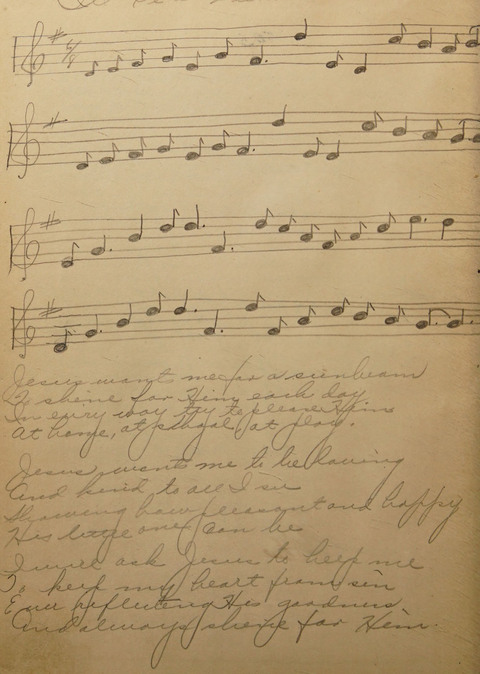 6/8
Jesus wants me for a sunbeam
To shine for Him each day
In every way try to please Him
At home, at school, at play.
Jesus wants me to be loving
And kind to all I see
Showing how pleasant and happy
His little one can be
I will ask Jesus to help me
To keep my heart from sin
Ever reflecting His goodness
And always shine for Him.